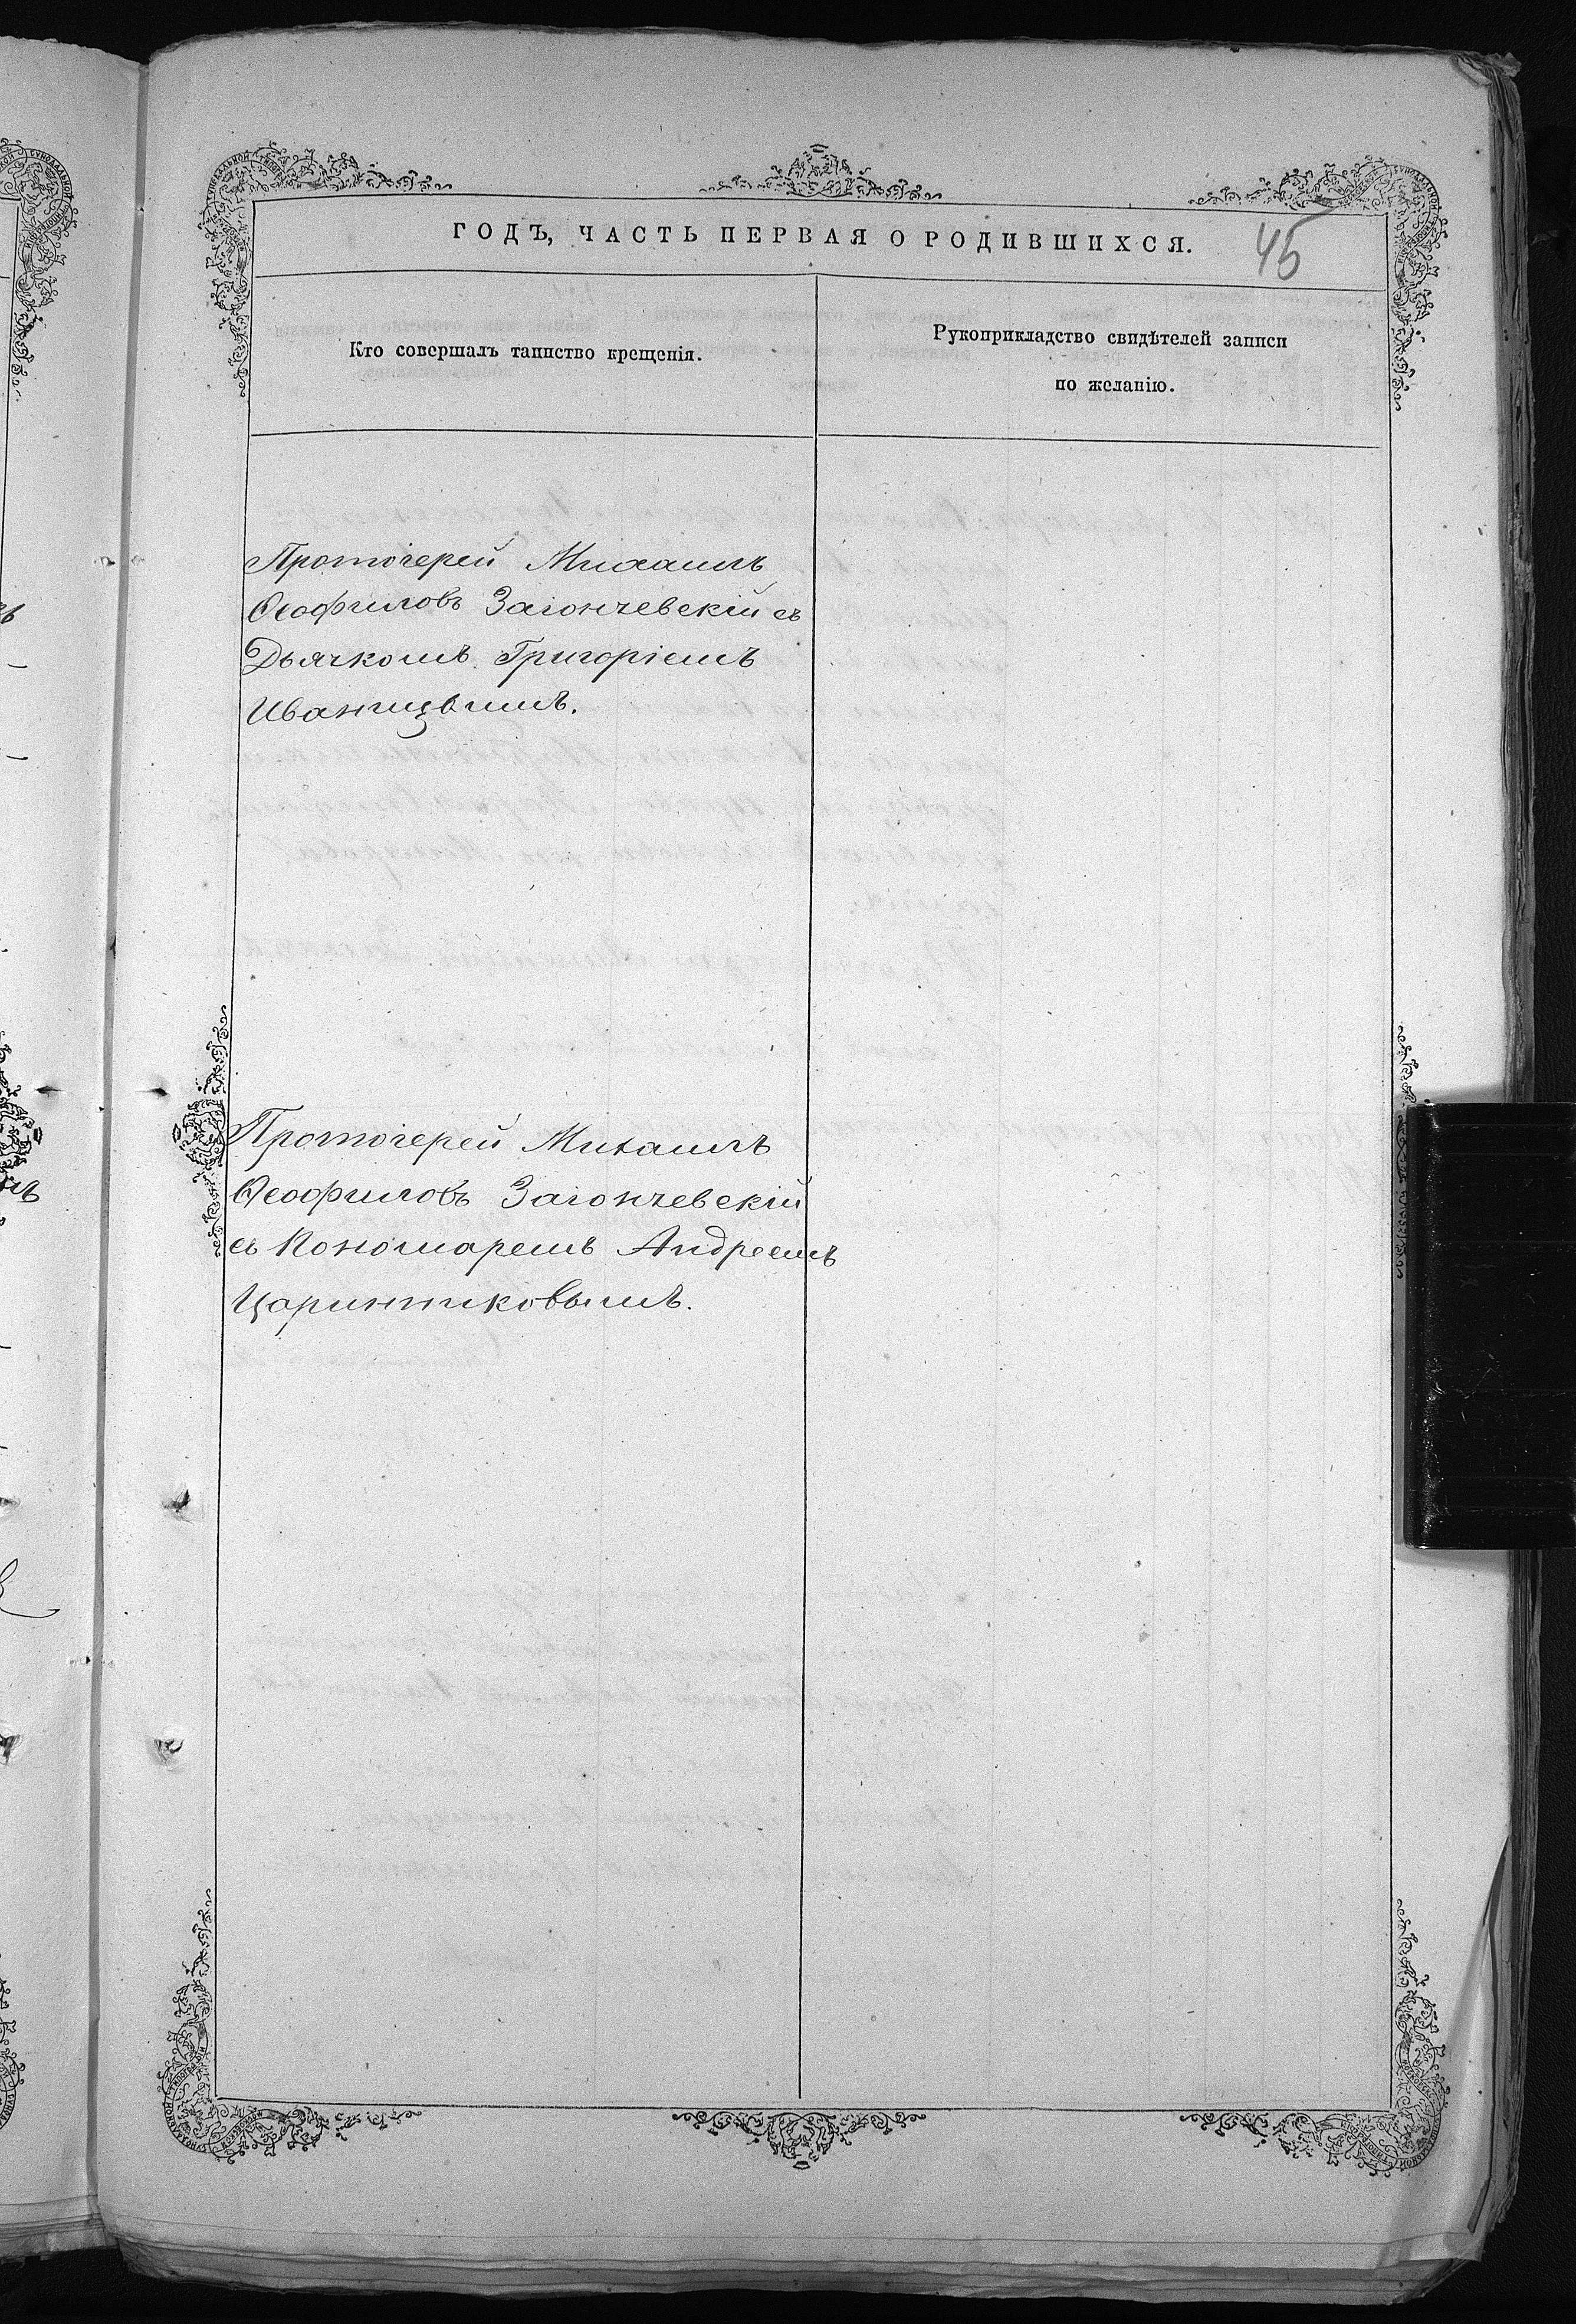 ГОДЪ, ЧАСТЬ ПЕРВАЯ О РОДИВШИХСЯ.
45
Кто совершалъ таинство крещенія.
Рукоприкладство свидѣтелей записи
по желанію.
Протоіерей Михаилъ
Ѳеофиловъ Загончевскій съ
Дьячкомъ Григоріемъ
Иваницвимъ.
Протоіерей Михаилъ
Ѳеофиловъ Загончевскій
съ Пономаремъ Андреемъ
Царинниковымъ.